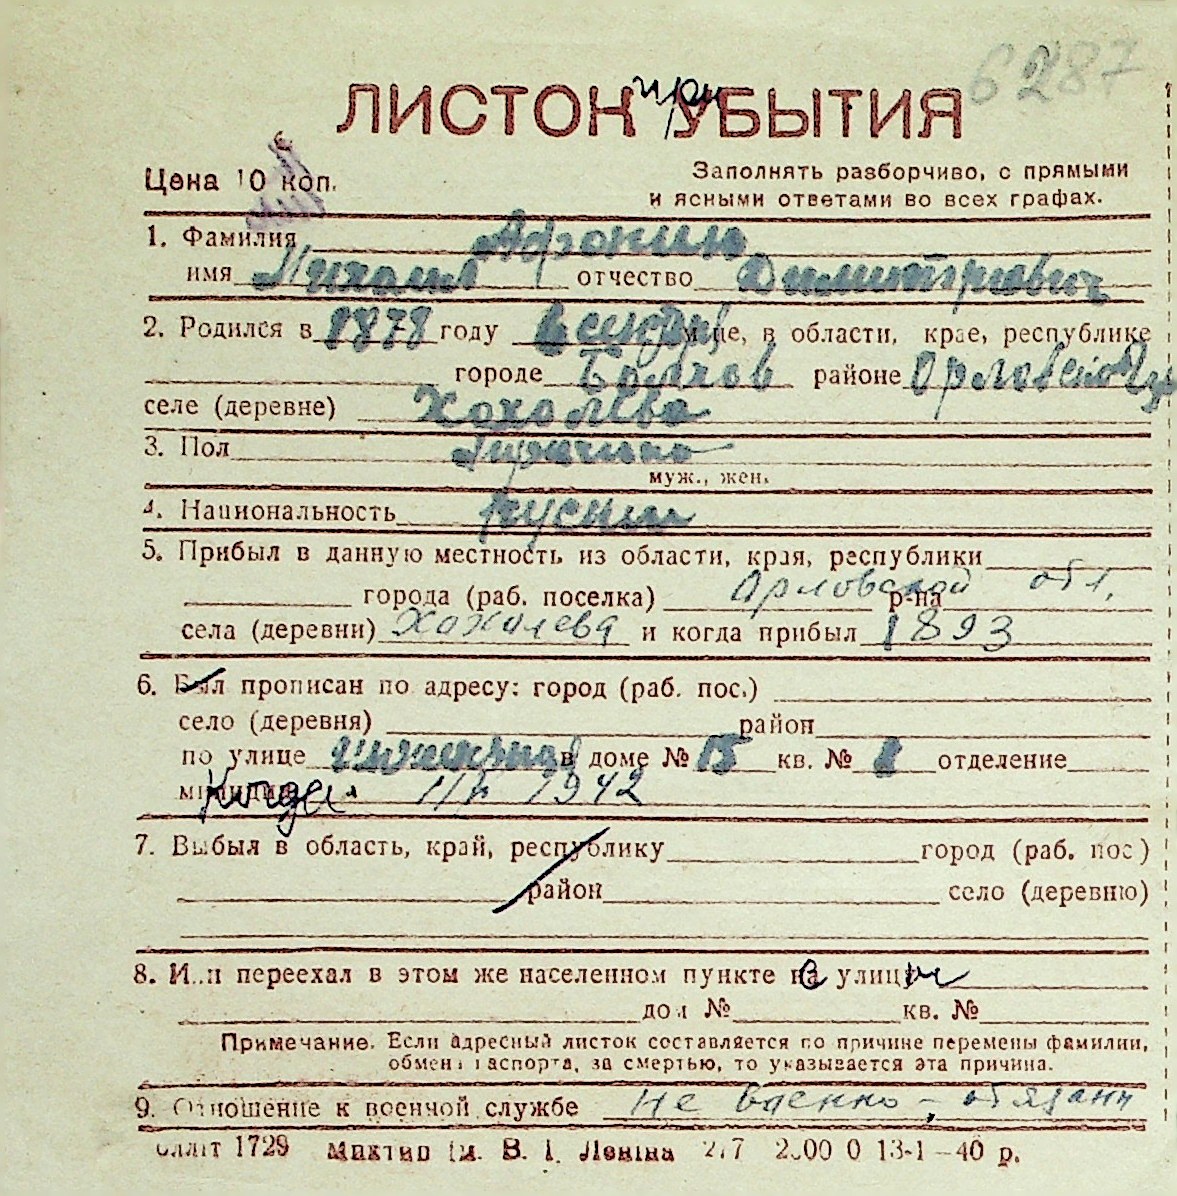 6287
ЛИСТОК при УБЫТИЯ
Цена 10 коп.
Заполнять разборчиво, с прямыми
и ясными ответами во всех графах.
1. Фамилия Афонин
имя Михаил отчество Димитриевич
2. Родился в 1878 году м-це, в области, крае, республике
городе Болхов районе Орловской
селе (деревне) Хохолева
3. Пол
муж., жен.
4. Национальность
5. Прибыл в данную местность из области, края, республики
города (раб. поселка) Орловской р-на обл.
села (деревни) Хохолева и когда прибыл 1893
6. Был прописан по адресу: город (раб. пос.)
село (деревня) район
по улице в доме № 15 кв. № отделение
милиции Когда. 1942
7. Выбыл в область, край, республику город (раб. пос)
район село (деревню)
8. Или переехал в этом же населенном пункте на улицу
дом № кв. №
Примечание. Если адресный листок составляется по причине перемены фамилии,
обмена паспорта, за смертью, то указывается эта причина.
9. Отношение к военной службе не военно-обязанн
Облліт 1729 ім. В. І. Леніна 13-1—40 р.